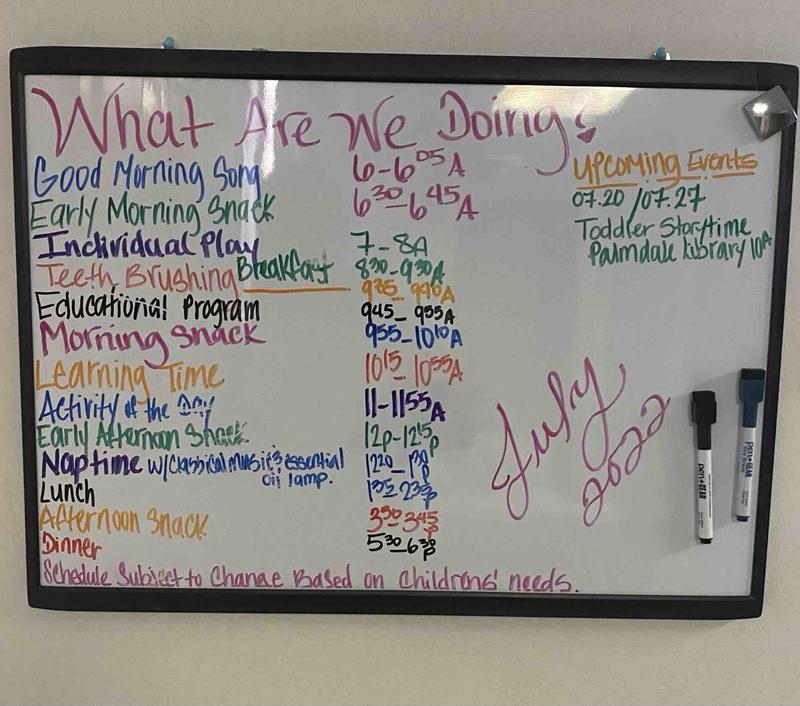 What Are We Doing?
Good Morning Song 6-6:05A
Early Morning Snack 6:30-6:45A
Individual Play 7-8A
Breakfast 8:30-9:30A
Teeth Brushing 9:35-9:40A
Educational Program 9:45-9:55A
Morning Snack 9:55-10:10A
Learning Time 10:15-10:55A
Activity of the Day 11-11:55A
Early Afternoon Snack 12p-12:15p
Naptime w/classical music & essential oil lamp. 12:20-1:30p
Lunch 1:35-2:35p
Afternoon Snack 3:30-3:45p
Dinner 5:30-6:30p
Schedule Subject to Change Based on Childrens' needs.
Upcoming Events
07.20 / 07.27
Toddler Storytime
Palmdale Library 10A
July
2022
pen+GEAR
pen+GEAR